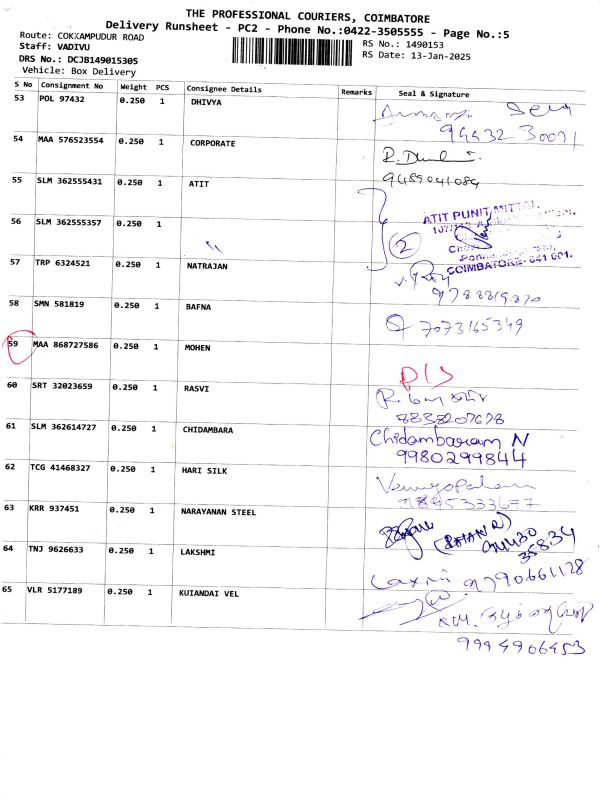 THE PROFESSIONAL COURIERS, COIMBATORE
Delivery Runsheet - PC2 - Phone No.:0422-3505555 - Page No.:5
Route: COKXAMPUDUR ROAD
Staff: VADIVU
RS No.: 1490153
DRS No.: DCJB149015305
RS Date: 13-Jan-2025
Vehicle: Box Delivery
S No Consignment No Weight PCS Consignee Details Remarks Seal & Signature
53 POL 97432 0.250 1 DHIVYA
94432 30071
54 MAA 576523554 0.250 1 CORPORATE
9489041084
55 SLM 362555431 0.250 1 ATIT
ATIT PUNIT MITTAL
56 SLM 362555357 0.250 1 " 2
COIMBATORE- 641 001.
57 TRP 6324521 0.250 1 NATRAJAN
58 SMN 581819 0.250 1 BAFNA
7073165349
59 MAA 868727586 0.250 1 MOHEN
D/S
60 SRT 32023659 0.250 1 RASVI
8838207678
61 SLM 362614727 0.250 1 CHIDAMBARA
Chidambaram N
9980299844
62 TCG 41468327 0.250 1 HARI SILK
Venugopalan
63 KRR 937451 0.250 1 NARAYANAN STEEL
35834
64 TNJ 9626633 0.250 1 LAKSHMI
Laxmi 9790661128
65 VLR 5177189 0.250 1 KUIANDAI VEL
9994906453